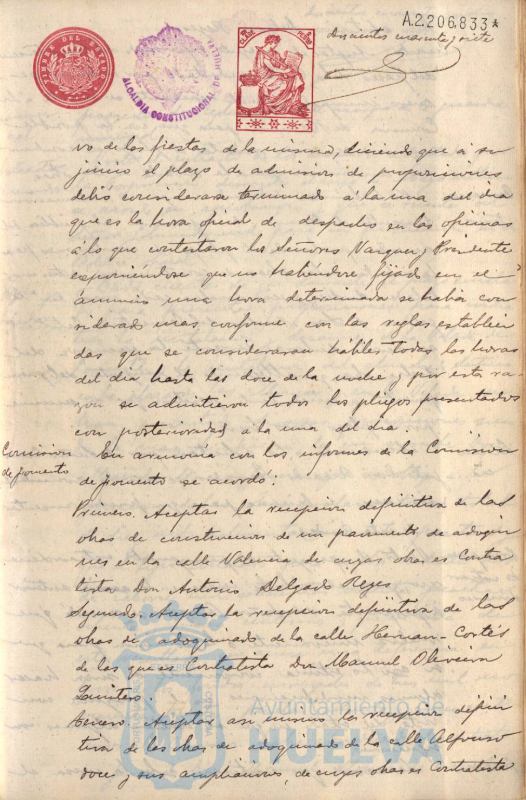 A.2.206.833*
Doscientos cuarenta y siete
TIMBRE DEL ESTADO
ALCALDIA CONSTITUCIONAL DE HUELVA
vo de las fiestas de la misma, diciendo que á su
juicio el plazo de admision de proposiciones
debió considerarse terminado á la una del dia
que es la hora oficial de despacho en las oficinas
á lo que contestaron los Señores Vazquez y Presidente
exponiéndose que no habiéndose fijado en el
anuncio una hora determinada se habia con
siderado mas conforme con las reglas estableci
das que se consideraran hábiles todas las horas
del dia hasta las doce de la noche y por esta ra
zon se admitieron todos los pliegos presentados
con posterioridad á la una del dia.
Comision
de fomento
En armonia con los informes de la Comision
de fomento se acordó:
Primero. Aceptar la recepcion definitiva de las
obras de construccion de un pavimento de adoqui
nes en la calle Valencia de cuyas obras es Contra
tista Don Antonio Delgado Reyes
Segundo. Aceptar la recepcion definitiva de las
obras de adoquinado de la calle Hernan-Cortés
de las que es Contratista Don Manuel Oliveira
Quintero.
Tercero. Aceptar asi mismo la recepcion defini
tiva de las obras de adoquinado de la calle Alfonso
doce y sus ampliaciones, de cuyas obras es Contratista
Ayuntamiento de
HUELVA